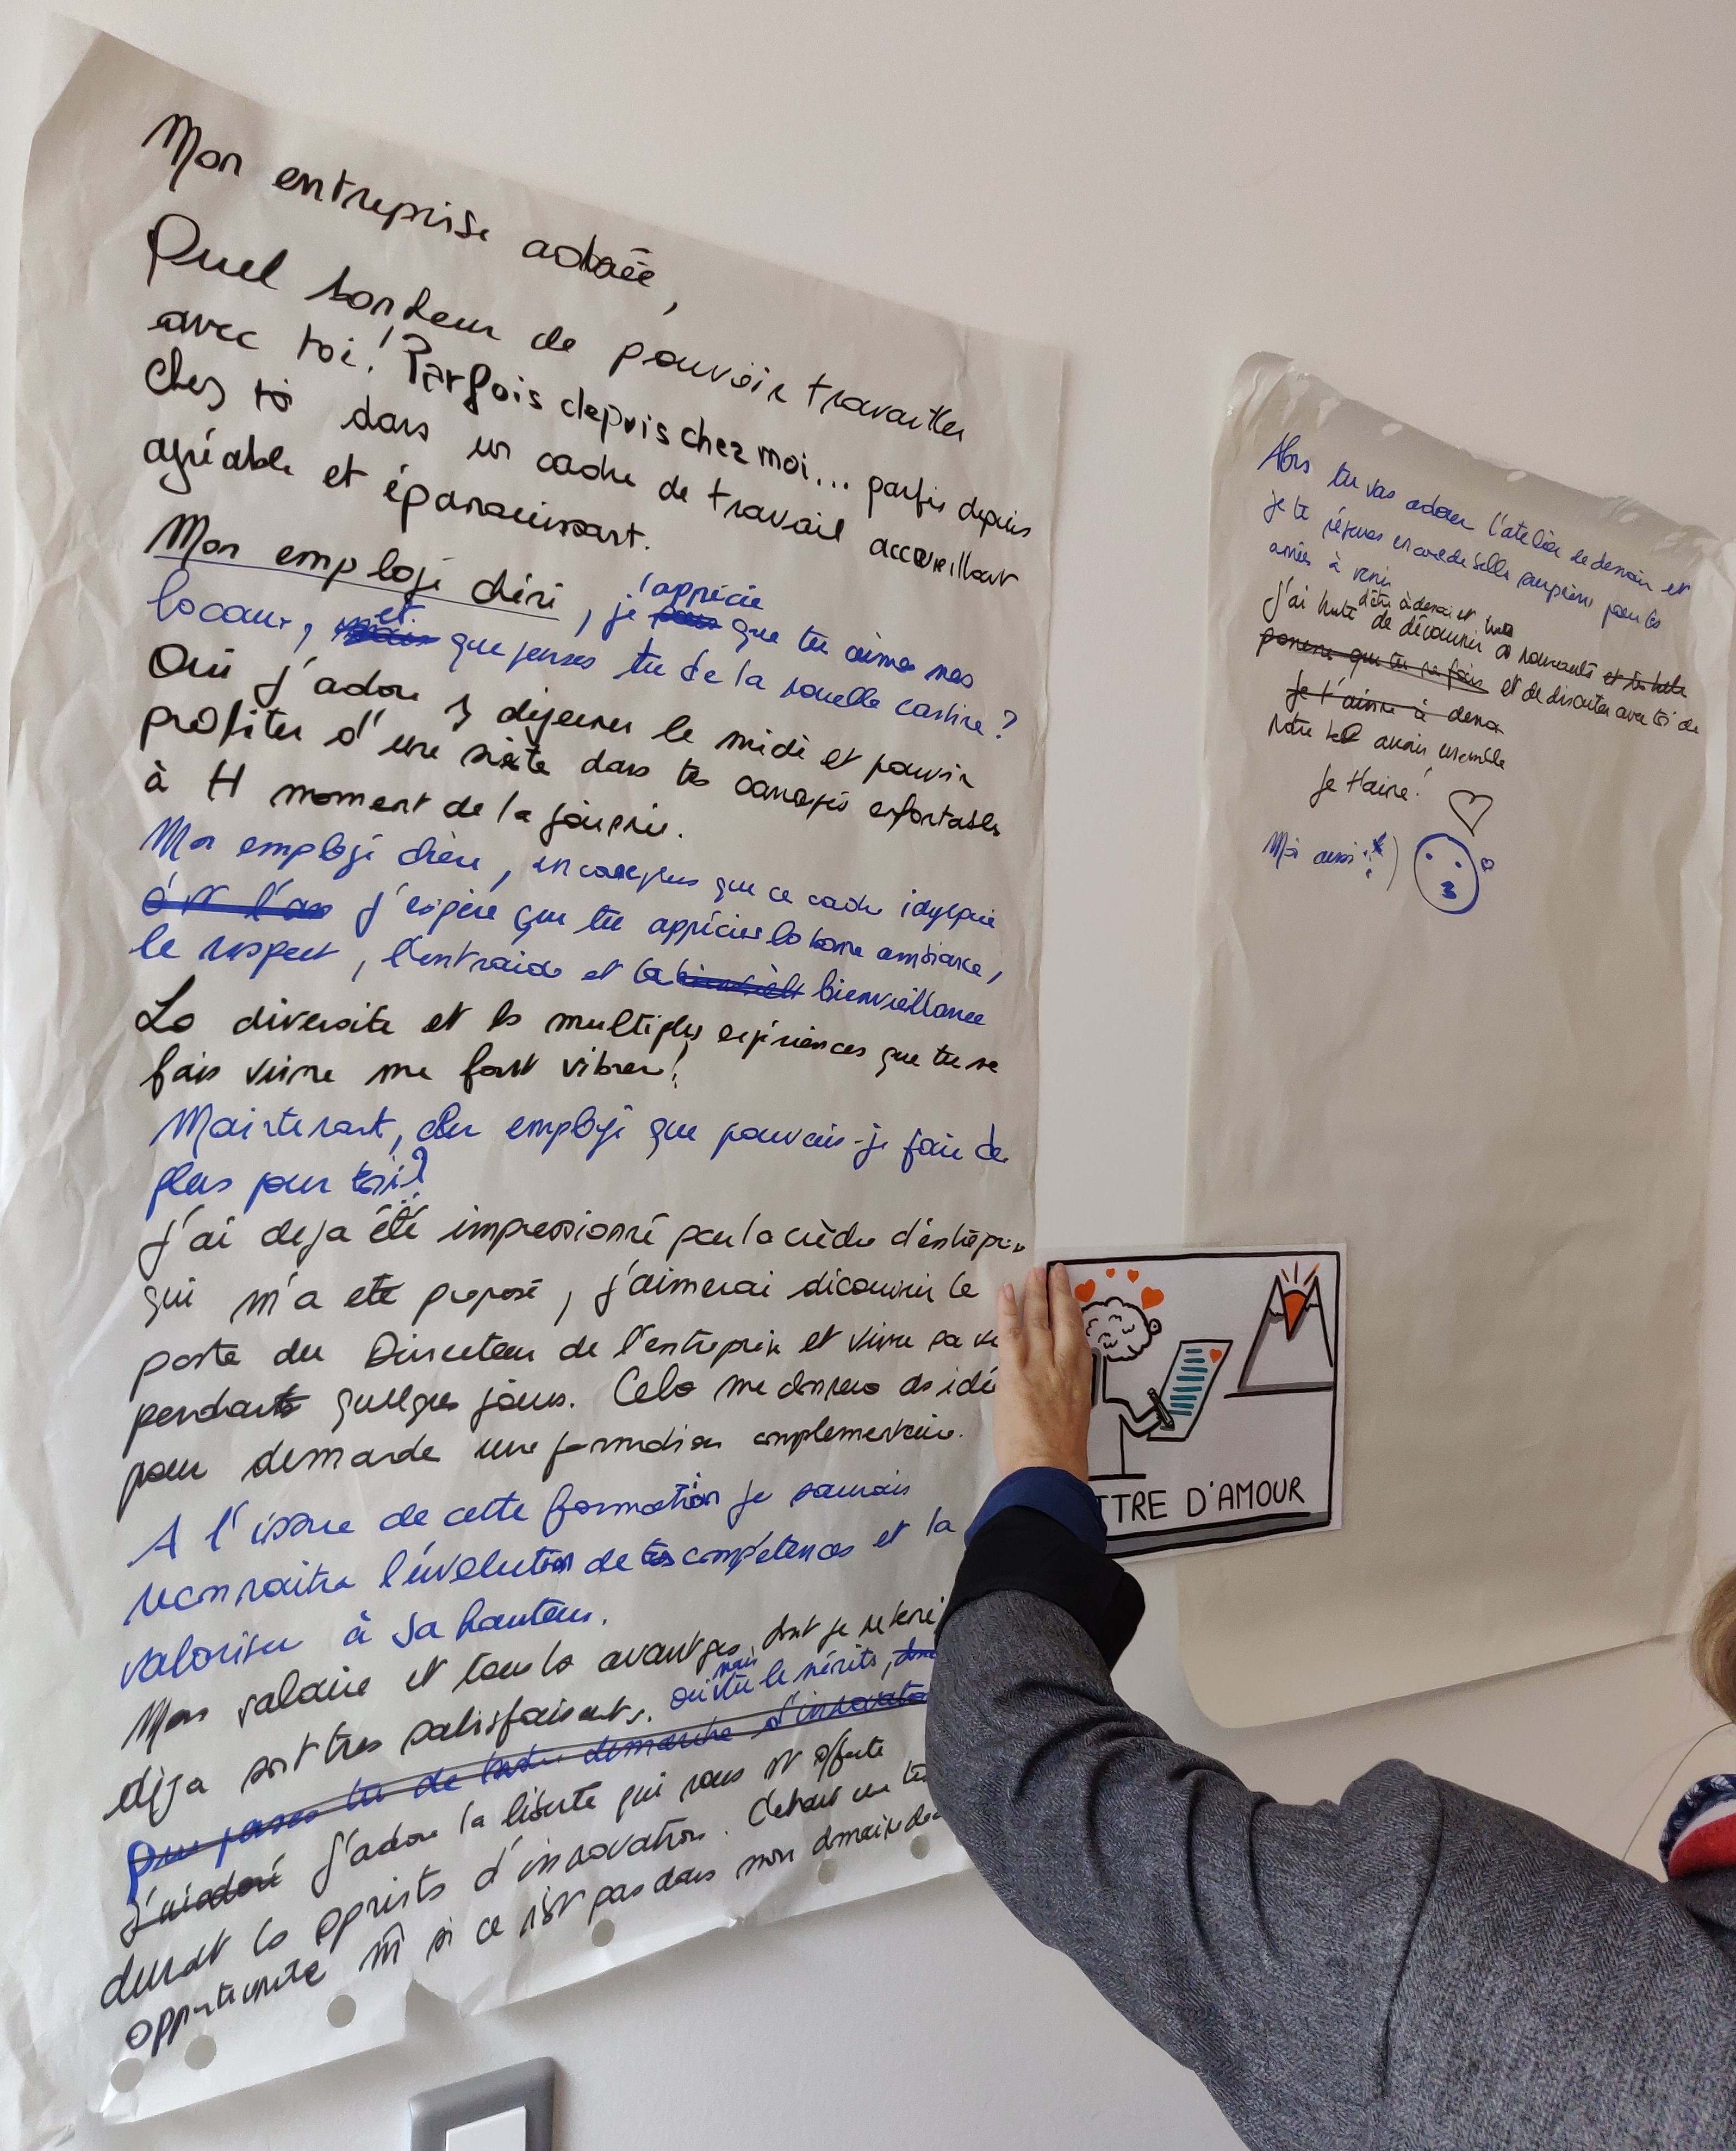 Mon entreprise adorée,
Quel bonheur de pouvoir travailler
avec toi! Parfois depuis chez moi... parfois depuis
chez toi dans un cadre de travail accueillant
agréable et épanouissant.
Mon employé chéri, j'apprécie que tu aimes mes
locaux, et que penses tu de la nouvelle cantine?
Oui j'adore y déjeuner le midi et pouvoir
profiter d'une sieste dans tes canapés confortables
à tt moment de la journée.
Mon employé chéri, encore plus que ce cadre idyllique
j'espère que tu apprécies la bonne ambiance,
le respect, l'entraide et la bienveillance
La diversité et les multiples expériences que tu me
fais vivre me font vibrer!
Maintenant, cher employé que pouvais-je faire de
plus pour toi?
J'ai deja été impressionné par la crèche d'entrepri
qui m'a eté proposé, j'aimerai découvrir le
poste du Directeur de l'entreprise et vivre sa vie
pendant quelques jours. Cela me donnera des idé
pour demande une formation complementaire.
A l'issue de cette formation je saurais
reconnaitre l'évolution de tes compétences et la
valoriser à sa hauteur.
Mon salaire et tous les avantages, dont je
déja sont tres satisfaisants. oui mais tu le mérites,
Que penses tu de notre demarche d'innovation
J'ai adoré J'adore la liberte qui nous est offerte
durant les sprints d'innovation. C'etait une
opportunité m̂ si ce n'est pas dans mon domaine de
Alors tu vas adorer l'atelier de demain et
je te réserve encore de belles surprises pour les
années à venir
J'ai hate d'être à demain et
de découvrir ces nouveautés
et de discuter avec toi de
je t'aime à
notre bel avenir ensemble
Je t'aime!
Moi aussi
TTRE D'AMOUR